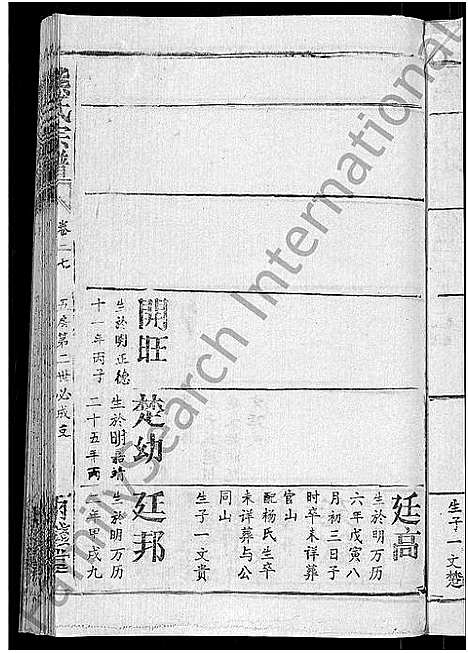 生子一文楚
廷高
生於明万历
六年戊寅八
月初三日子
时卒未详葬
官山
配杨氏生卒
未详葬与公
同山
生子一文贵
開旺
生於明正德
十一年丙子
楚幼
生於明嘉靖
二十五年丙
廷邦
生於明万历
二年甲戌九
氏宗譜
卷二七
五房第二世必成支
FamilySearch International